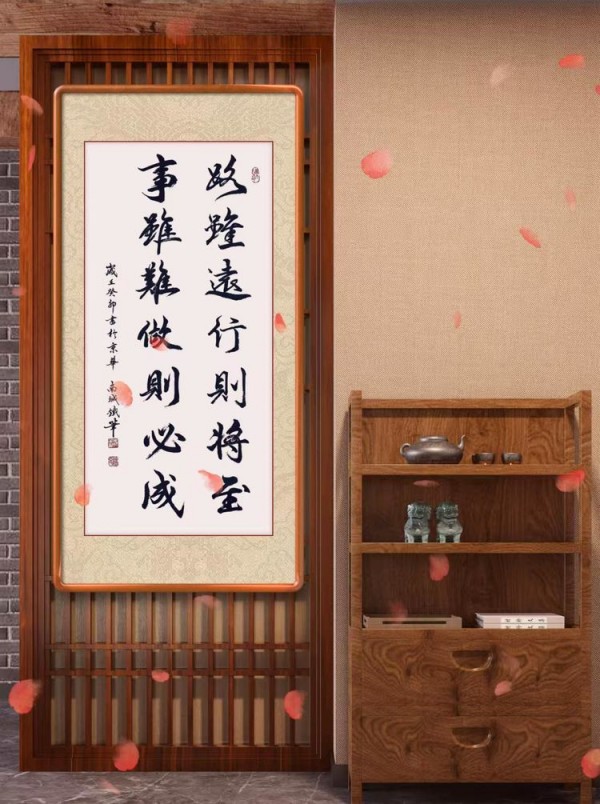 路雖遠行則將至
事雖難做則必成
歲在癸卯書於京華